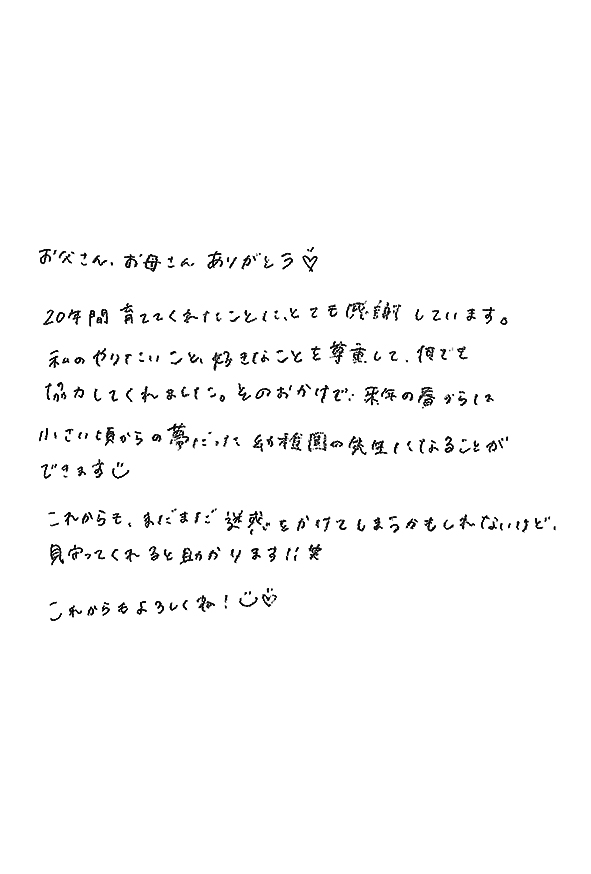 お父さん、お母さん ありがとう♡
20年間育ててくれたことに、とても感謝しています。
私のやりたいこと、好きなことを尊重して、何でも
協力してくれました。そのおかげで、来年の春からは
小さい頃からの夢だった幼稚園の先生になることが
できます☺
これからも、まだまだ迷惑をかけてしまうかもしれないけど、
見守ってくれると助かります!!笑
これからもよろしくね!☺♡